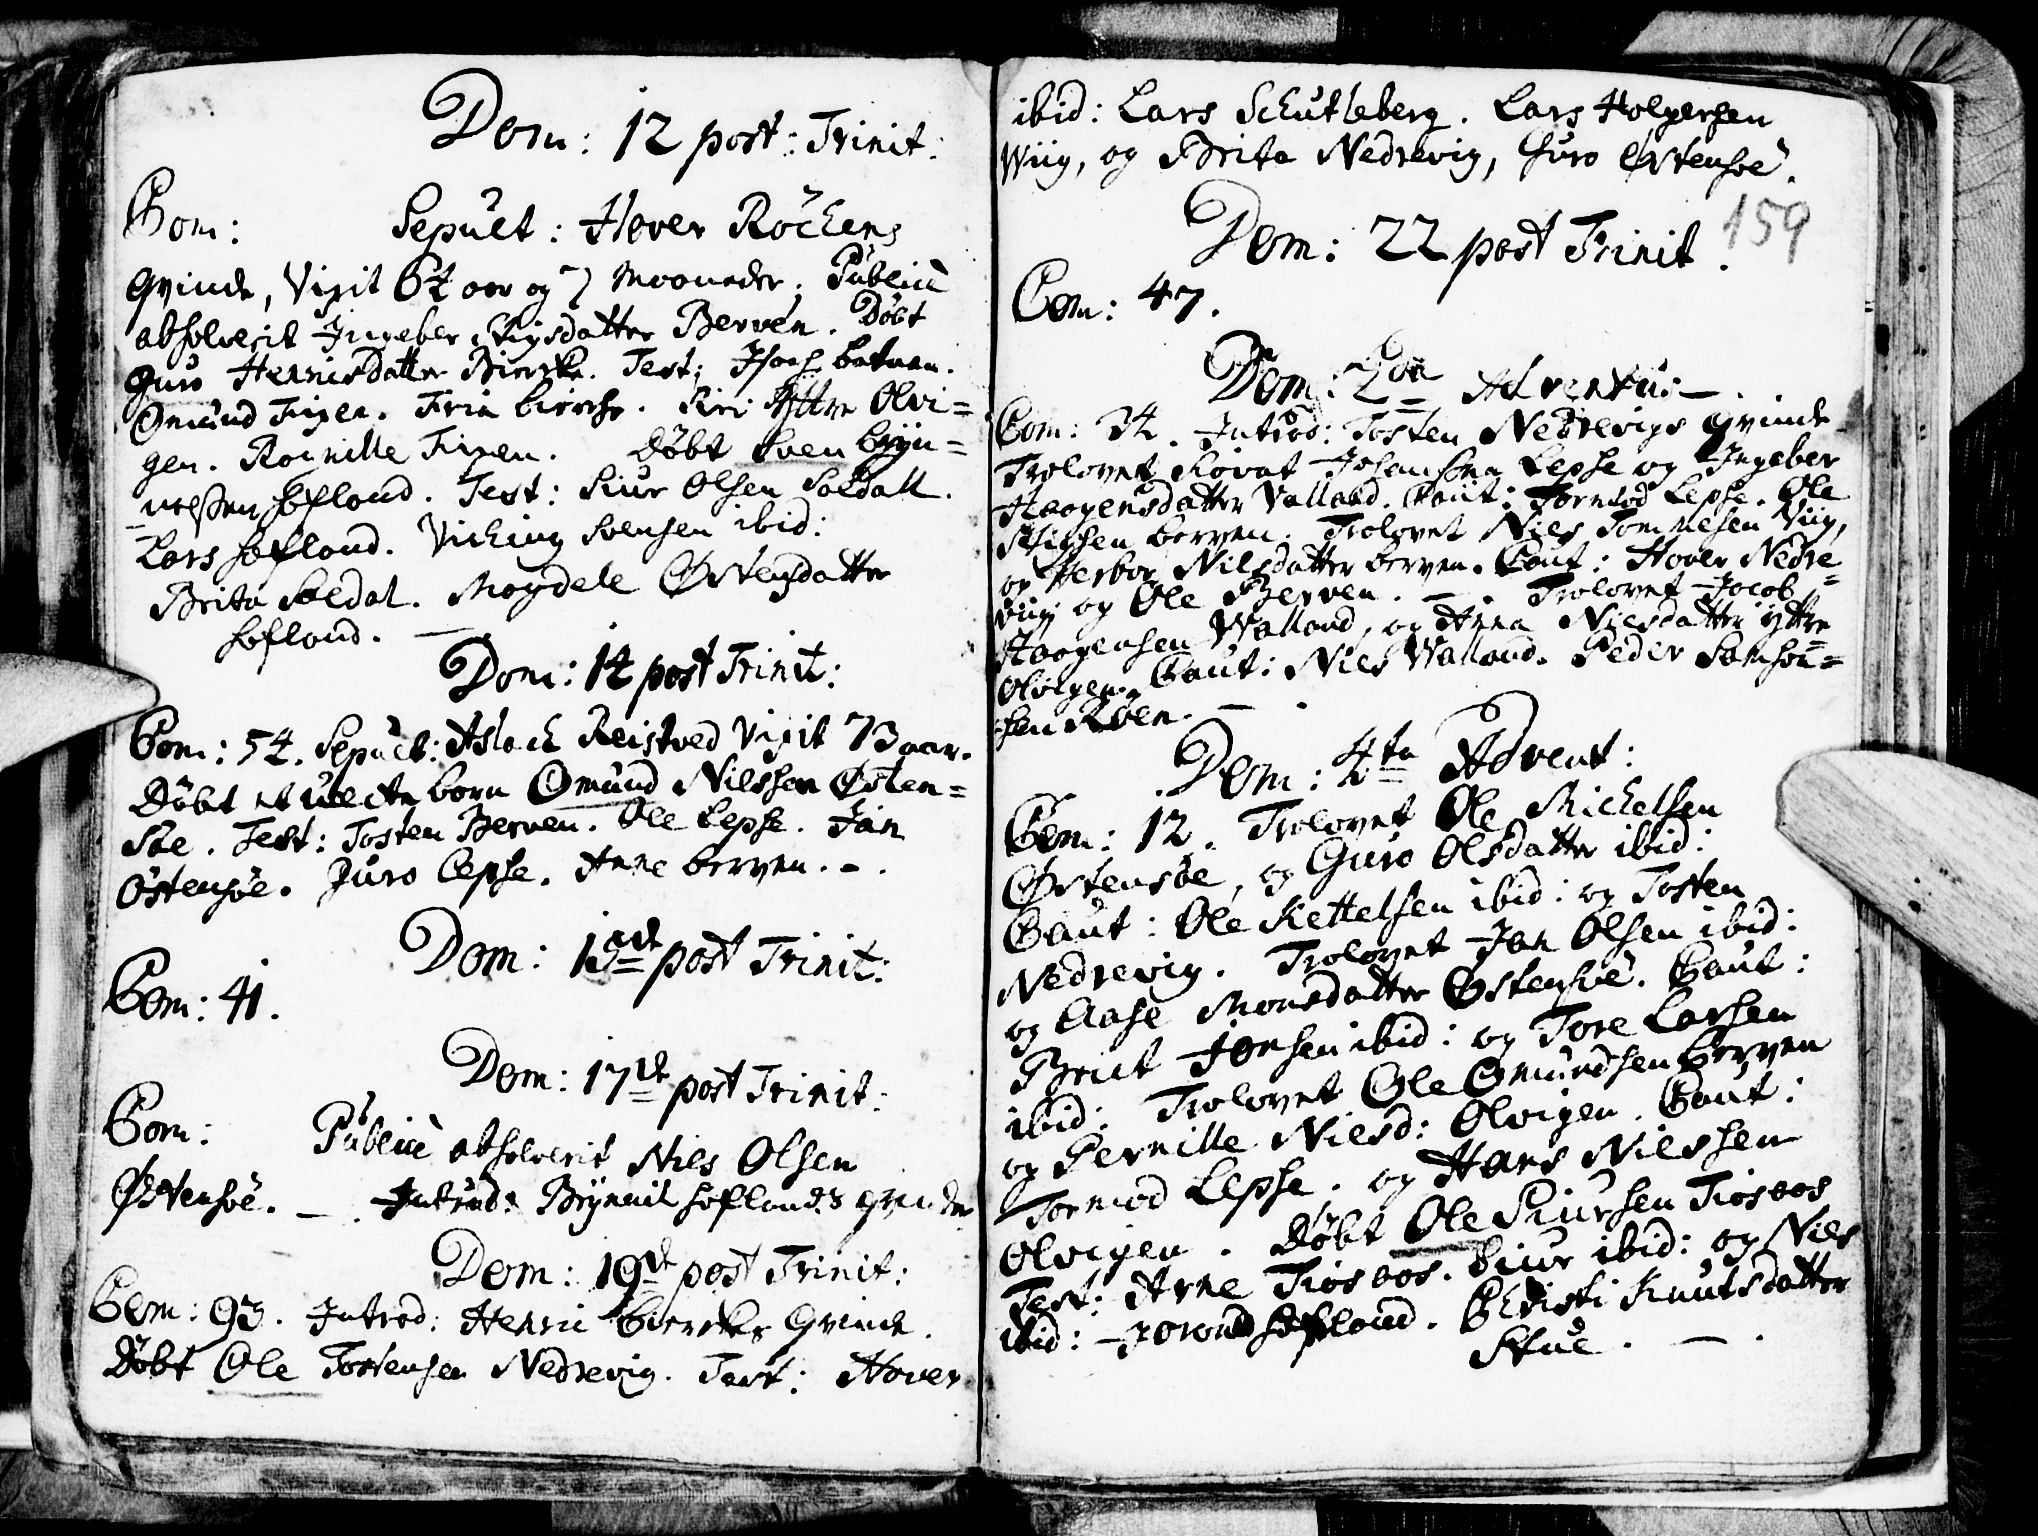 Dom: 12 post: Trinit:
Com: Sepult: Hover Röckens
Qvinde, Vixit 64 aar og 7 Maaneder. Publicè
absolverit Ingeber Stigsdatter Berven. Döbt
Guro Henricsdatter Biercke. Test: Isach
Omund Fixen. Kari Yttre Olvi=
gen. Rognille Fixen. Döbt Sven Bryn=
nelssen Sofland. Test: Siur Olsen Soldall.
Lars Sofland. Viching Svensen ibid:
Brita Soldal. Magdele Østensdatter
Sofland. —
Dom: 14 post Trinit:
Com: 54. Sepult: Aslach Reistved Vixit 73 aar.
Döbt et uecte barn Omund Nilssen Østen=
söe. Test: Tosten Berven. Ole Lepse. Jan
Östensöe. Guro Lepse. Anne Berven. –.
Dom: 15de post Trinit:
Com: 41.
Dom: 17de post Trinit:
Com: Publicè absolverit Niels Olsen
Østensöe. —. Introd: Brynnil Soflands Qvinde
Dom: 19de post Trinit:
Com: 93. Introd: Henric Bierckes Qvinde.
Döbt Ole Tostensen Nedrevig. Test: Hover
ibid: Lars Schutleberg. Lars Holgersen
Wiig, og Brita Nedrevig, Guro Østensöe.
159
Dom: 22 post Trinit.
Com: 47.
Dom: 2da Adventus —.
Com: 34. Introd: Tosten Nedrevigs Qvinde
Trolovet Johansen Lepse og Ingeber
Haagensdatter Valland. Caut: Tormod Lepse. Ole
Berven. Trolovet Niels Tommesen Viig,
og Herbor Nilsdatter Berven. Caut: Hover Nedre=
Viig og Ole Berven. —. Trolovet Jacob
Haagensen Walland, og Anna Nielsdatter yttre
Olvigen. Caut: Niels Walland. Peder Samson=
sen Röen. —.
Dom: 4ta Advent:
Com: 12. Trolovet Ole Michelsen
Østensöe, og Guro Olsdatter ibid:
Caut: Ole Kettelsen ibid: og Tosten
Nedrevig. Trolovet Jan Olsen ibid:
og Aase Monsdatter Østensöe. Caut:
Jonsen ibid: og Tore Larsen
ibid: Trolovet Ole Omundsen Berven
og Pernille Nielsd: Olvigen. Caut:
Tormod Lepse, og Hans Nielssen
Olvigen. Döbt Ole Siursen Tiosaas
Test: Arne Tiosaas. Siur ibid: og Niels
ibid: Sofland. Christi Knutsdatter
Skue. —.